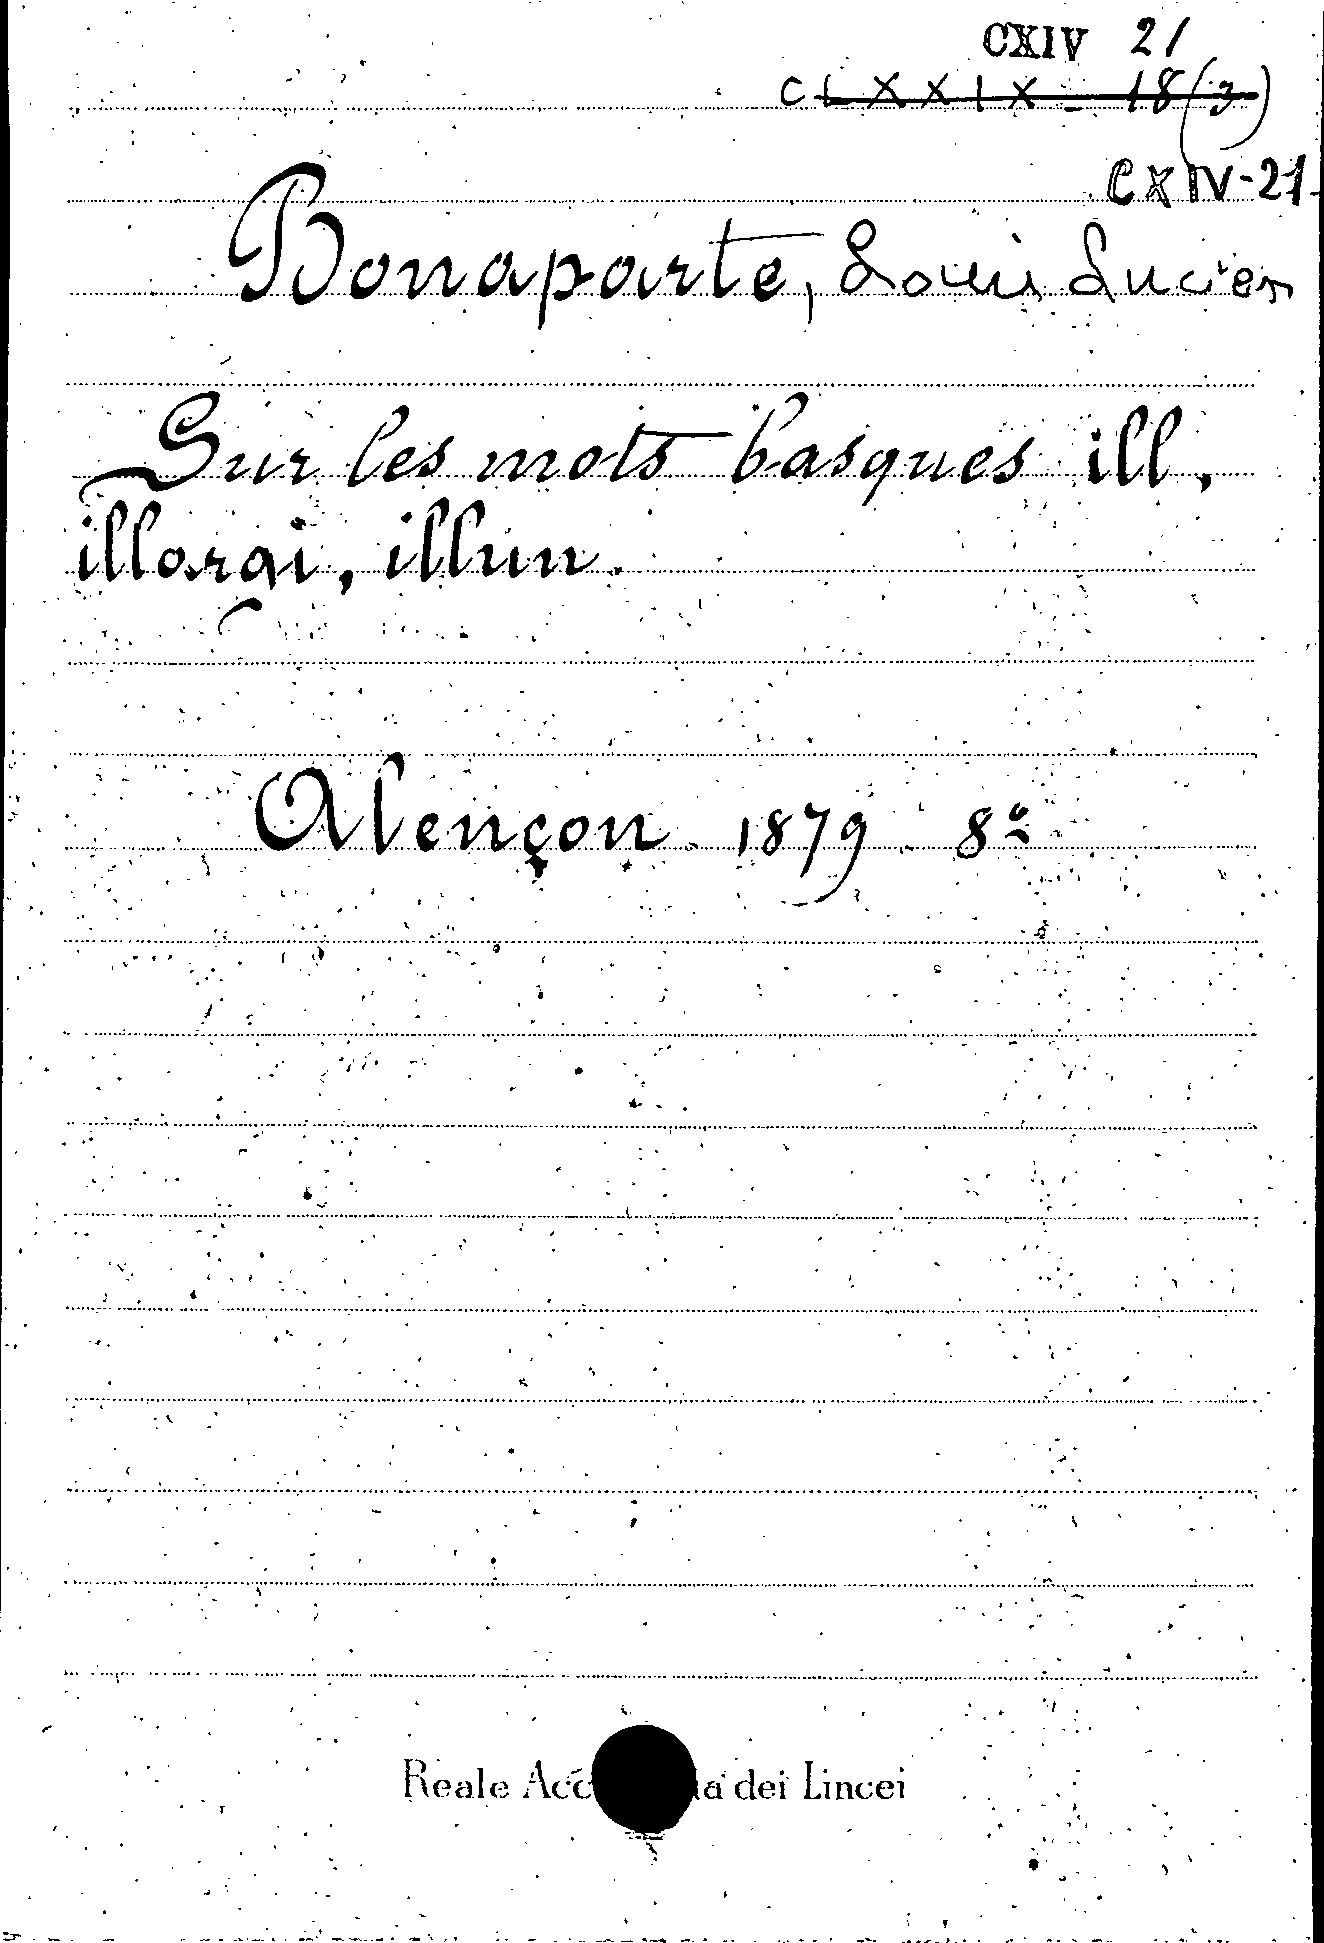 CXIV 21
CLXXIX - 18(3)
CXIV-21-
Bonaparte, Louis Lucien
Sur les mots basques ill,
illargi, illun.
Alençon 1879 8º
Reale Acc a dei Lincei